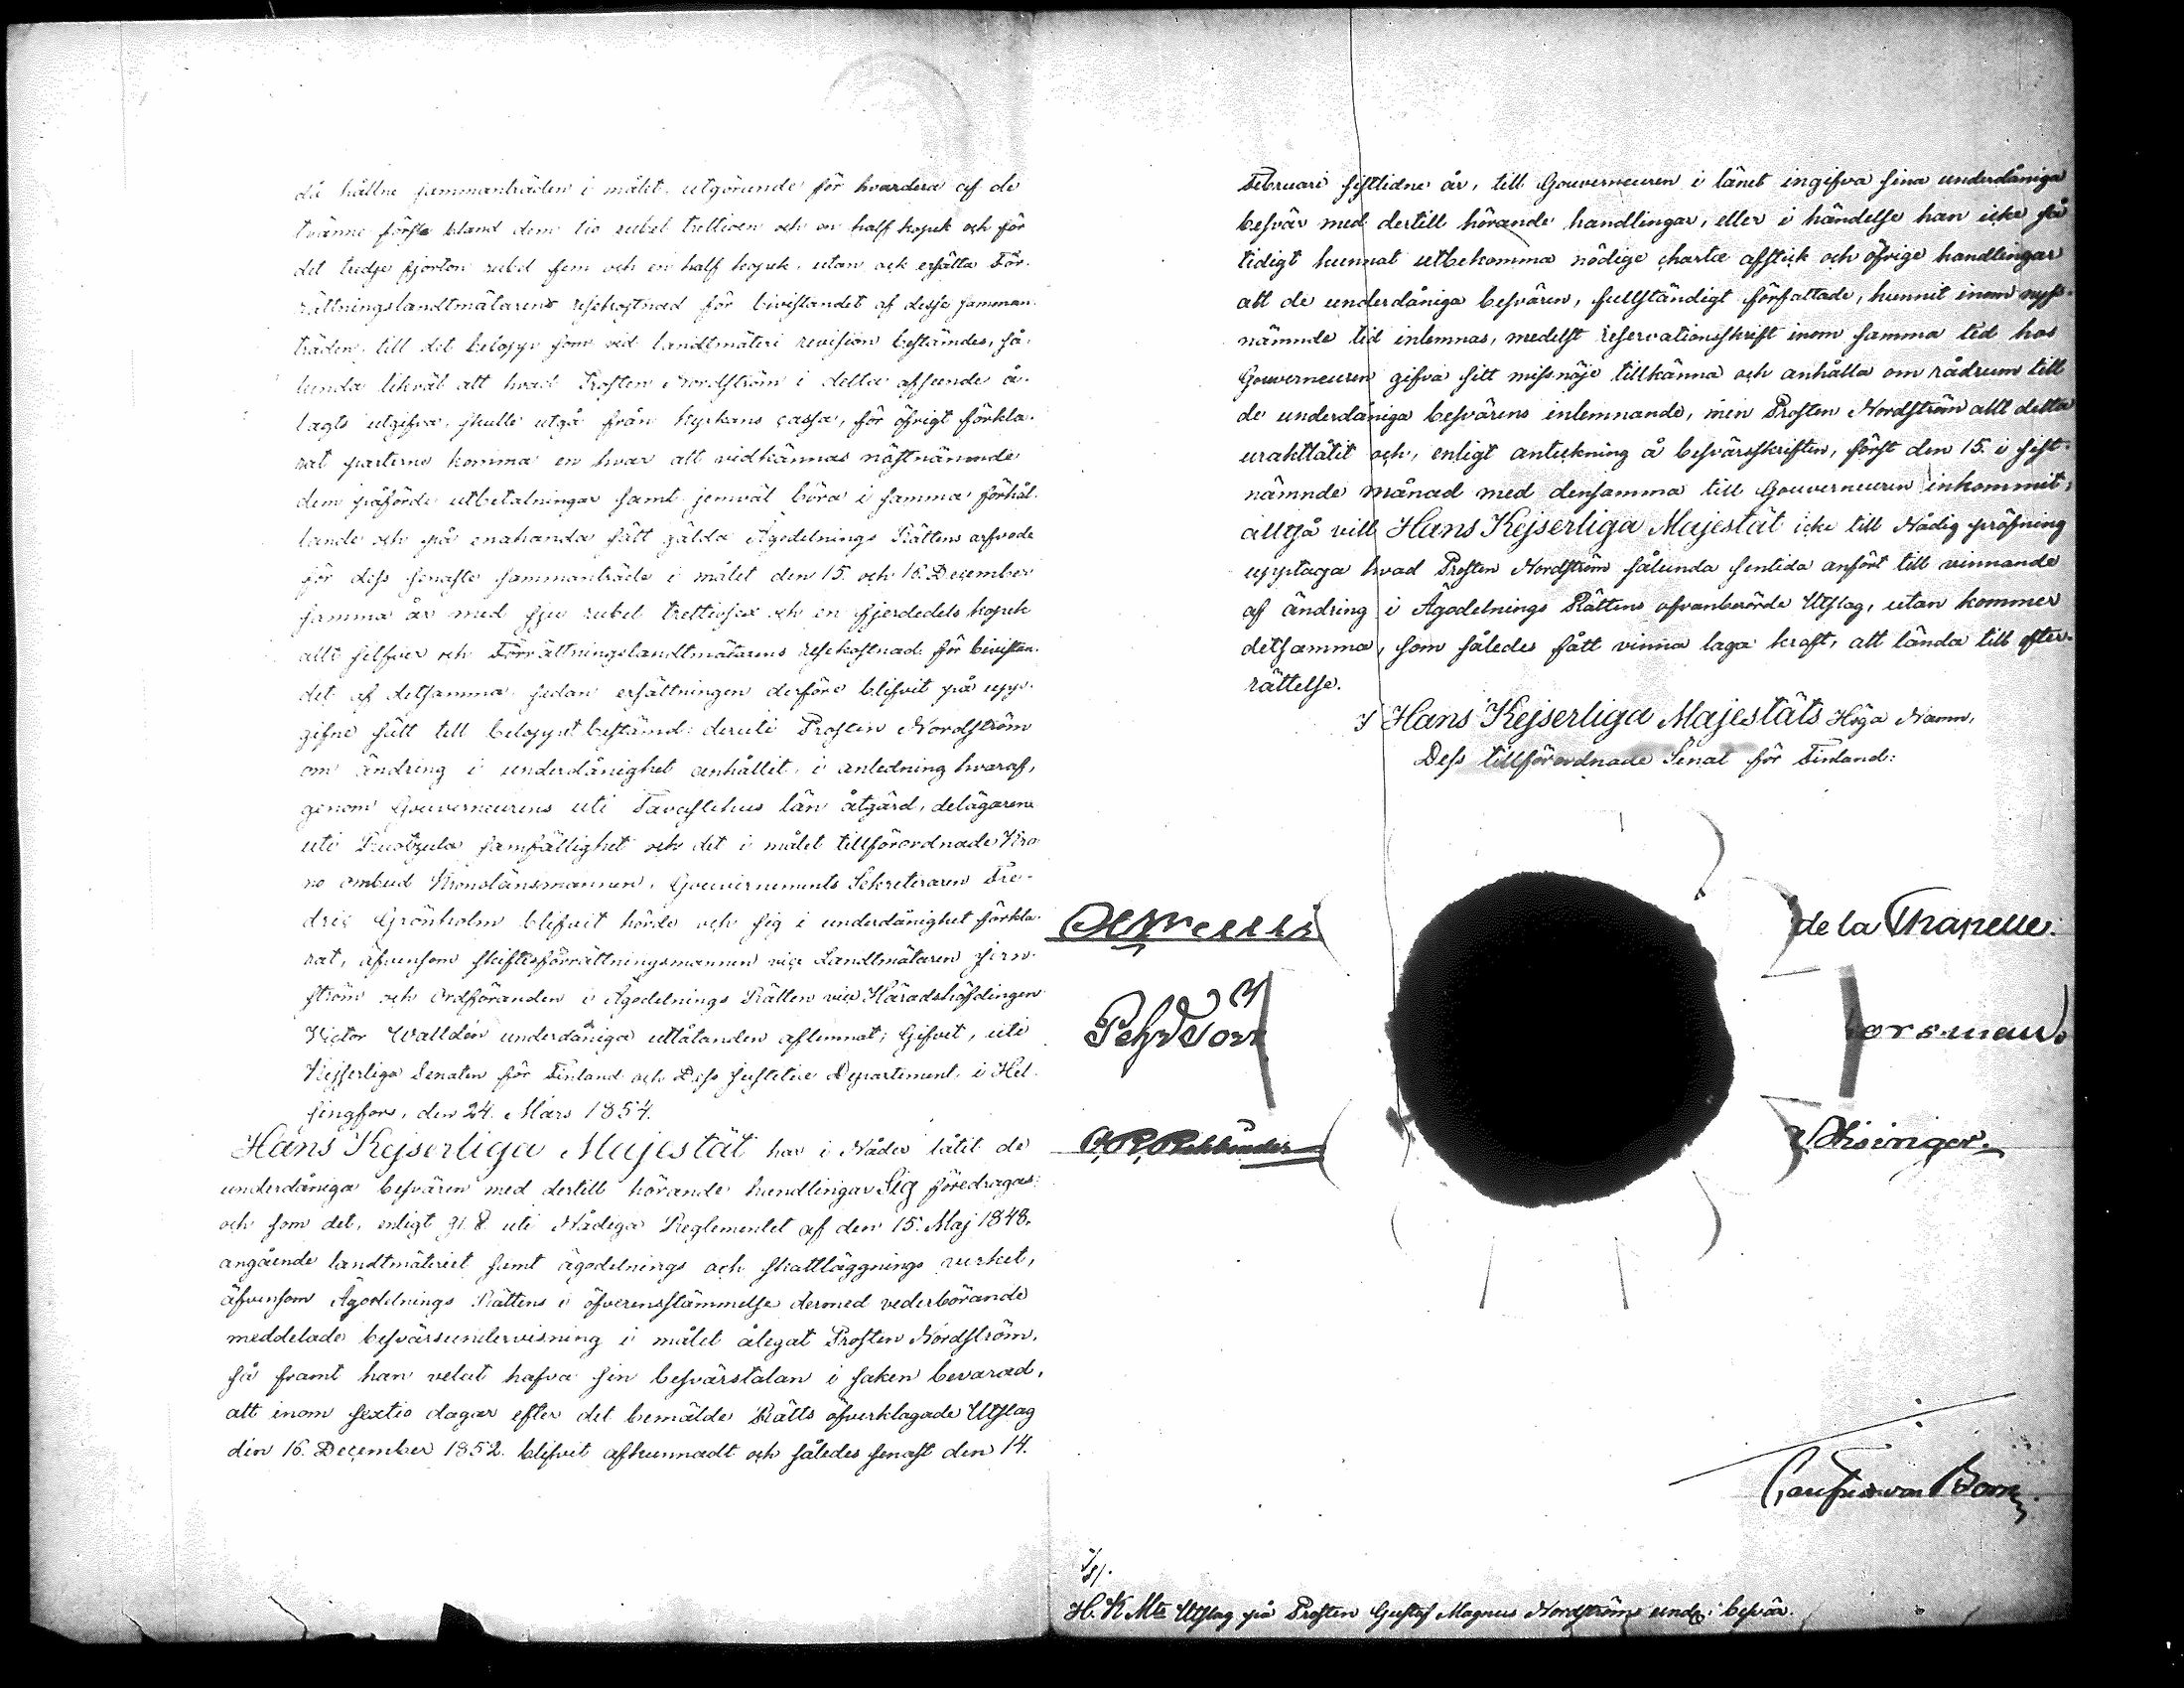 då hållne sammanträden i målet, utgörande för hvardera af de
tvänne förste bland dem tio rubel trettioen och en half kopek och för
det tredje fjorton rubel fem och en half kopek, utan ock ersätta För-
rättningslandtmätarens resekostnad för bivistandet af desse samman-
träden, till det belopp som ved landtmäteri revision bestämdes, så-
lunda likväl att hvad Prosten Nordström i detta afseende å-
lagts utgifva, skulle utgå från kyrkans cassa, för öfrigt förkla-
rat parterne komma en hvar att vidkännas näst nämnde
dem påförde utbetalningar samt jemväl böra i samma förhål-
lande och på enahanda sätt gälda Ägodelnings Rättens arfvode
för dess senaste sammanträde i målet den 15. och 16. December
samma år med sju rubel trettiosex och en fjerdedels kopek
allt silfver och Förrättningslandtmätarens resekostnad för bivistan-
det af detsamma, sedan ersättningen derföre blifvit på upp-
gifne sätt till beloppet bestämd; deruti Prosten Nordström
om ändring i underdånighet anhållit, i anledning hvaraf,
genom Gouverneurens uti Tavastehus län åtgärd, delägarene
uti samfällighet och det i målet tillförordnade Kro-
no ombud Kronolänsmannen, Gouvernements Sekreteraren Fre-
dric Grönholm blifvit hörde och sig i underdånighet förkla-
rat, äfvensom skiftesförrättningsmannen vice Landtmätaren
ström och Ordföranden i Ägodelnings Rätten vice Häradshöfdingen
Victor Walldén underdåniga utlåtanden aflemnat; Gifvet, uti
Kejserliga Senaten för Finland och Dess Justitiæ Departement, i Hel-
singfors, den 24. Mars 1854.
Hans Kejserliga Majestät har i Nåder låtit de
underdåniga besvären med dertill hörande handlingar Sig föredragas;
och som det, enligt 8 uti Nådiga Reglementet af den 15. Maj 1848,
angående landtmäteriet samt ägodelnings och skattläggnings verket,
äfvensom Ägodelnings Rättens i öfverensstämmelse dermed vederbörande
meddelade besvärsundervisning i målet ålegat Prosten Nordström,
så framt han velat hafva sin besvärstalan i saken bevarad,
att inom sextio dagar efter det bemälde Rätts öfverklagade Utslag
den 16. December 1852. blifvit afkunnadt och således senast den 14.
Februari sistlidne år, till Gouverneuren i länet ingifva sina underdåniga
besvär med dertill hörande handlingar, eller i händelse han icke så
tidigt kunnat utbekomma nödige chartæ afstick och öfrige handlingar
att de underdåniga besvären, fullständigt författade, hunnit inom nyss-
nämnde tid inlemnas, medelst reservationsskrift inom samma tid hos
Gouverneuren gifva sitt missnöje tillkänna och anhålla om rådrum till
de underdåniga besvärens inlemnande, men Prosten Nordström allt detta
uraktlåtit och, enligt anteckning å besvärsskriften, först den 15. i sist-
nämnde månad med densamma till Gouverneuren inkommit;
alltså vill Hans Kejserliga Majestät icke till Nådig pröfning
upptaga hvad Prosten Nordström sålunda sentida anfört till vinnande
af ändring i Ägodelnings Rättens ofvanberörde Utslag, utan kommer
detsamma, som således fått vinna laga kraft, att lända till efter-
rättelse.
I Hans Kejserliga Majestäts Höga Namn,
Dess tillförordnade Senat för Finland:
de la Chapelle.
Pehr
Carl von Born
H. K. Mts Utslag på Prosten Gustaf Magnus Nordströms und: besvär.